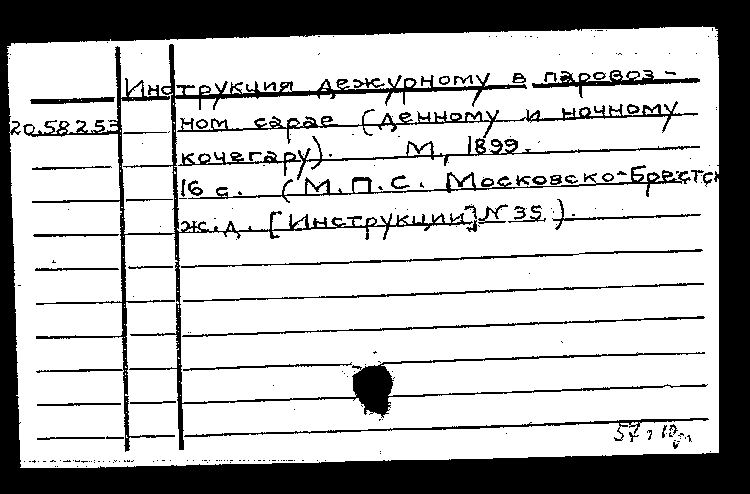 Инструкция дежурному в паровоз-
20.58.253 ном сарае (денному и ночному
кочегару). М, 1899.
16 с. (М.П.С. Московско-Брестск
ж.д. [Инструкции] № 35).